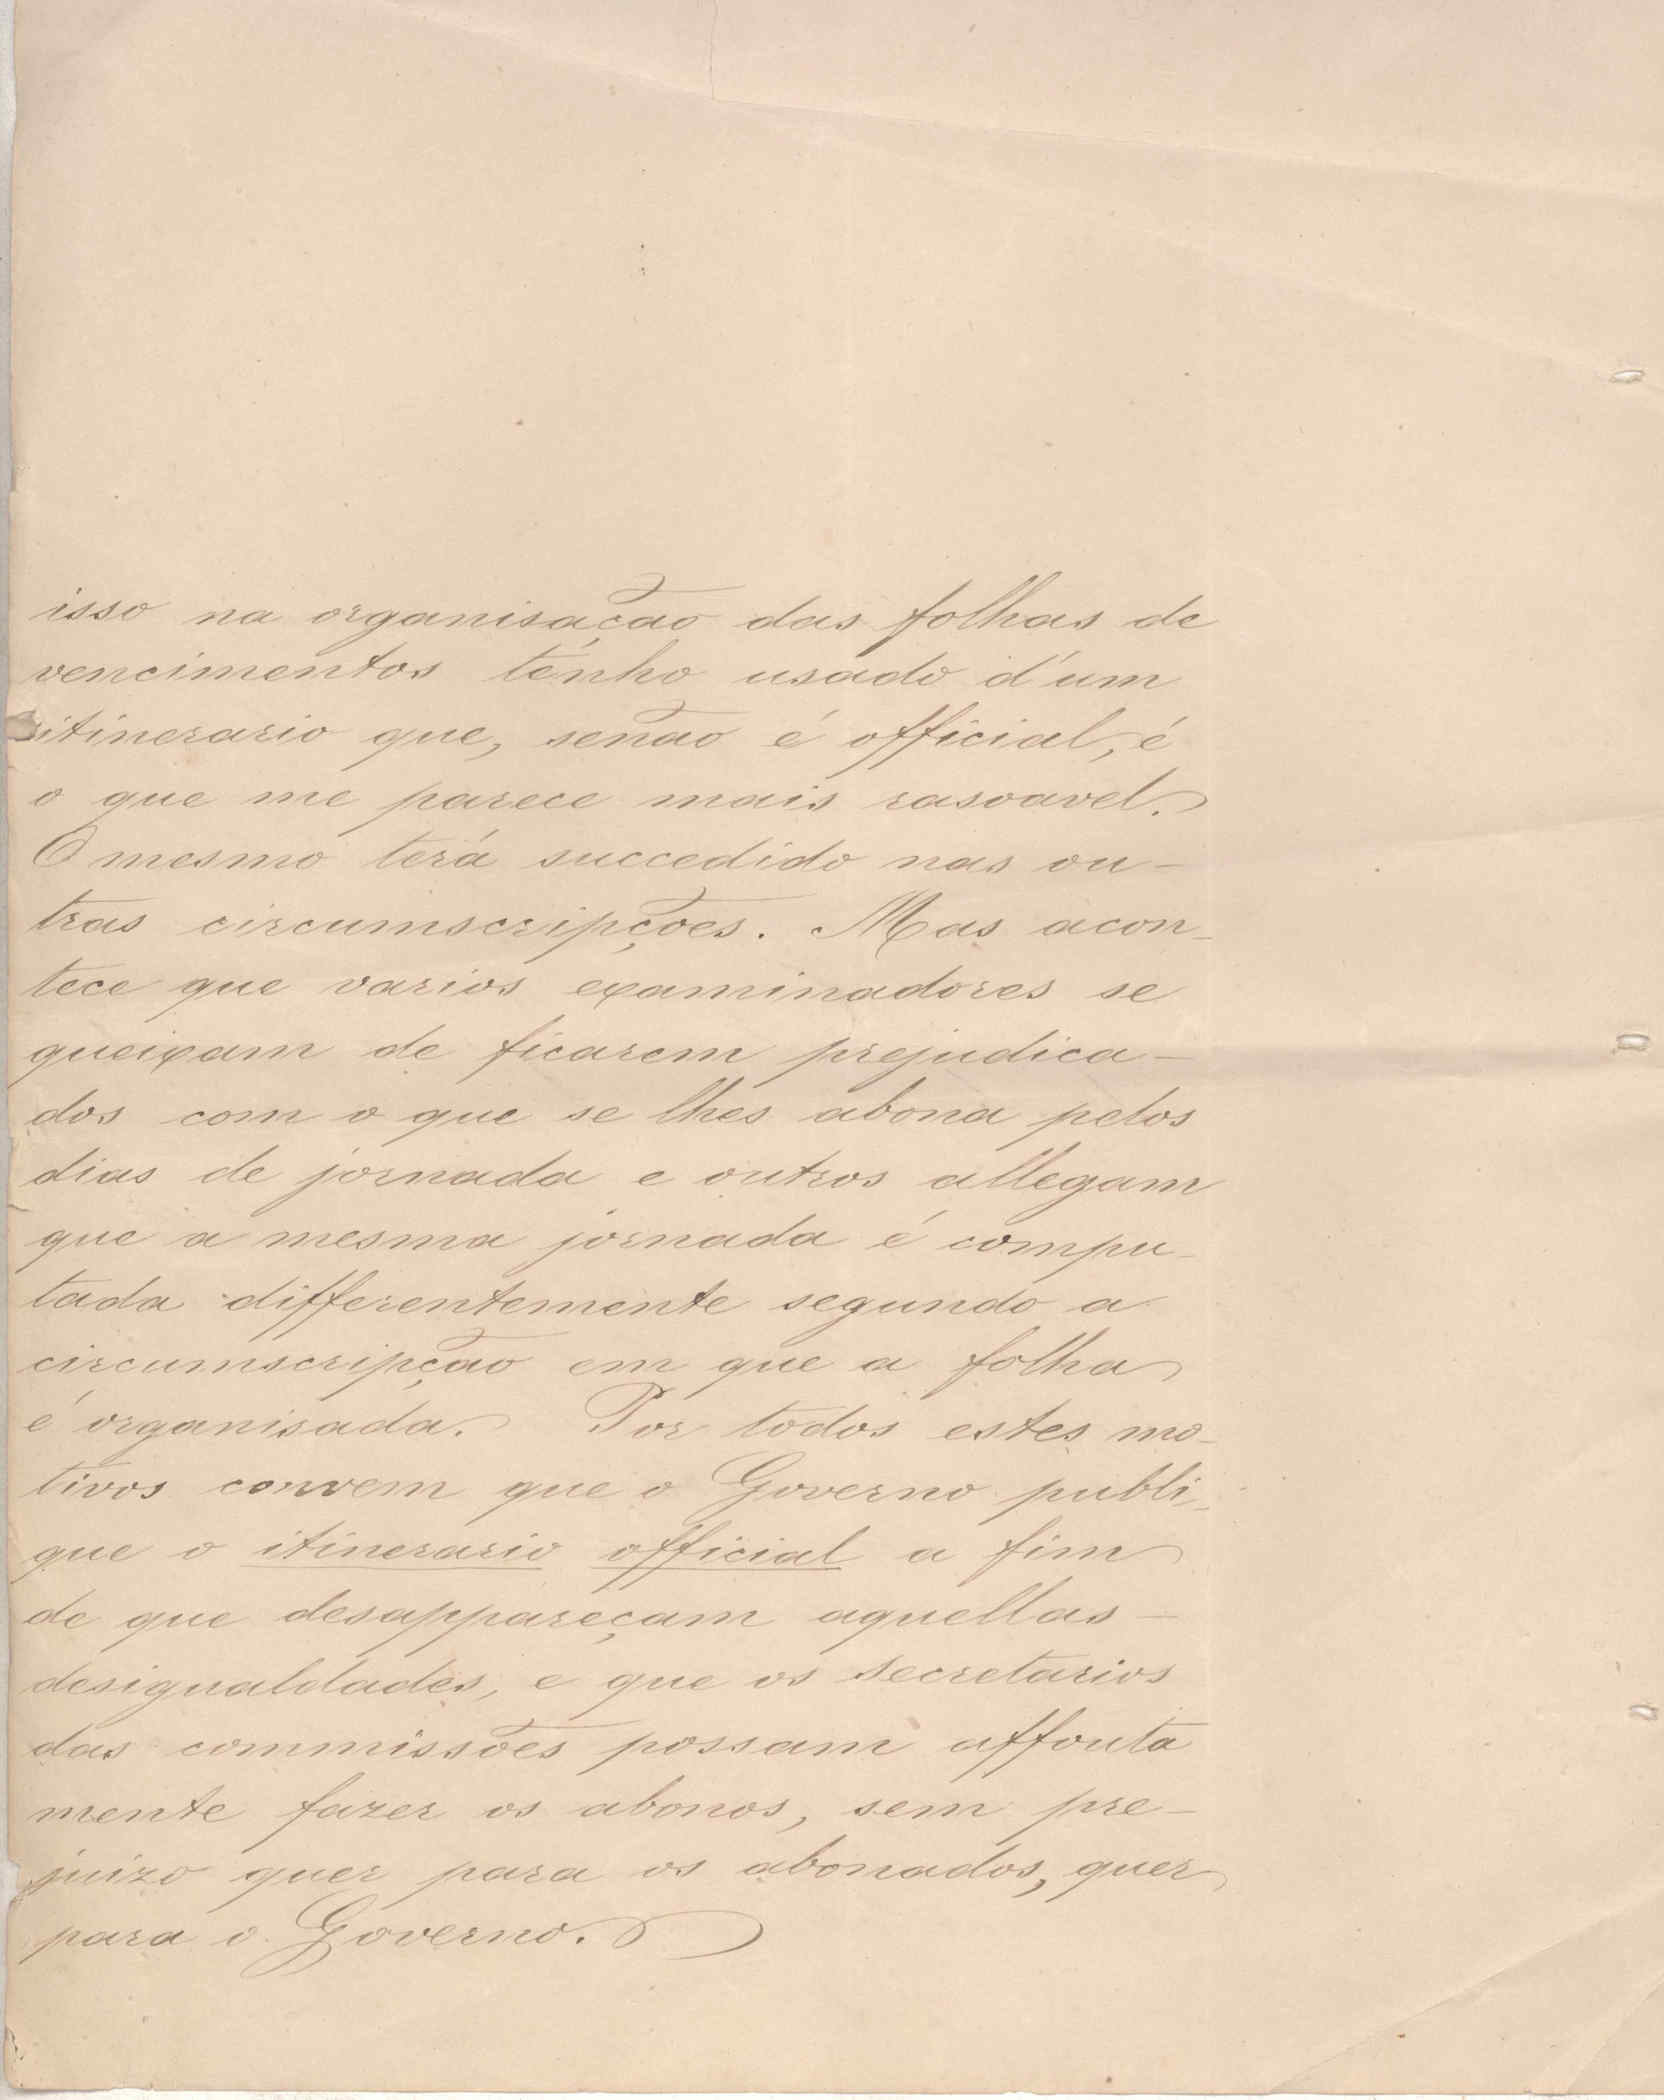 isso na organisação das folhas de
vencimentos tenho usado d'um
itinerario que, senão é official, é
o que me parece mais rasoavel.
O mesmo terá succedido nas ou-
tras circumscripções. Mas acon-
tece que varios examinadores se
queixam de ficarem prejudica-
dos com o que se lhes abona pelos
dias de jornada e outros allegam
que a mesma jornada é compu-
tada differentemente segundo a
circumscripção em que a folha
é organisada. Por todos estes mo-
tivos convem que o Governo publi-
que o itinerario official a fim
de que desappareçam aquellas-
desigualdades, e que os secretarios
das commissões possam affouta
mente fazer os abonos, sem pre-
juizo quer para os abonados, quer
para o Governo.